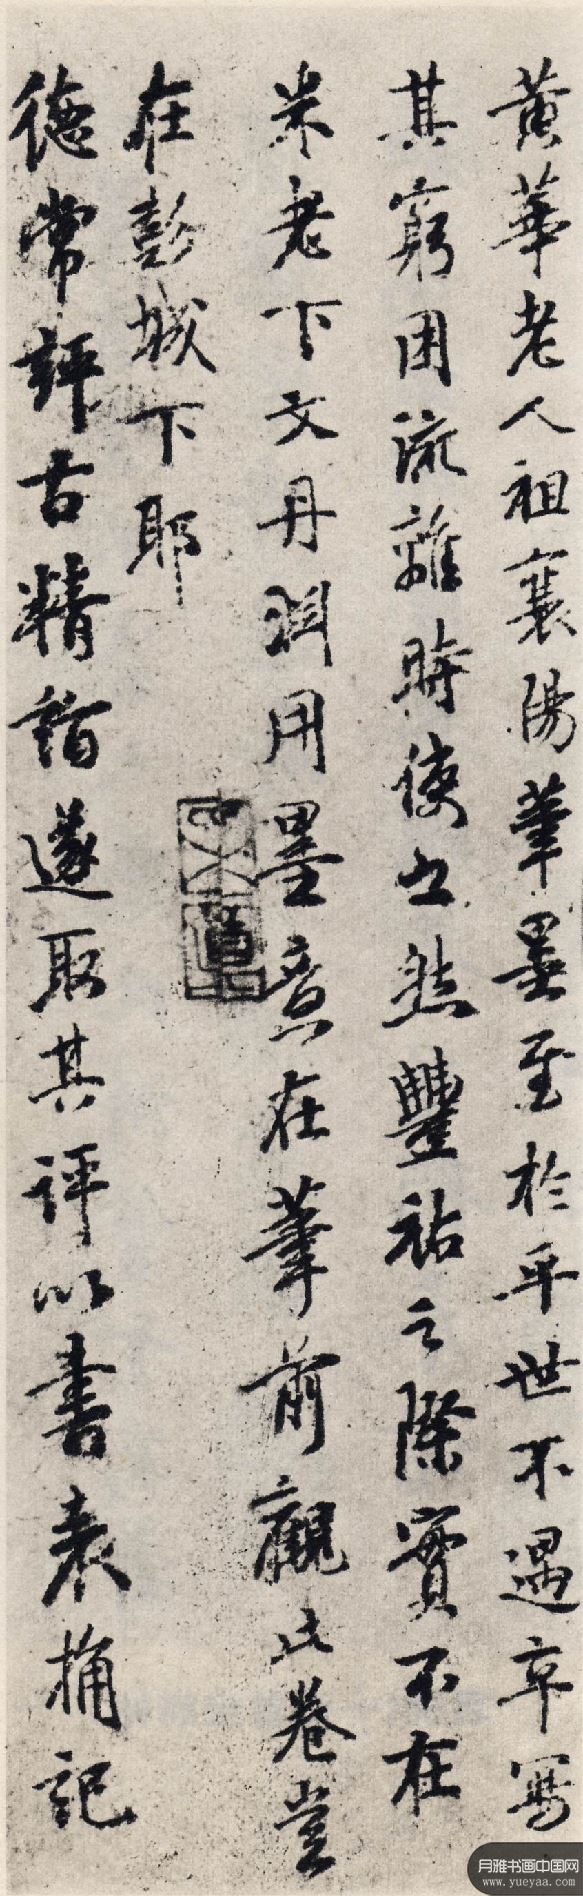 黃華老人祖襄陽筆墨至於平世不遇卒寫
其窮困流離時使出熙豐祐之際實不在
米老下文丹淵用墨意在筆前觀此卷豈
在彭城下耶
德常評古精詣遂取其評以書袁桷記
月雅书画中国网
www.yueyaa.com